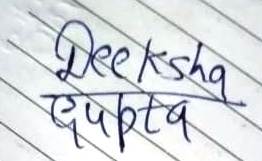 Deeksha
Gupta